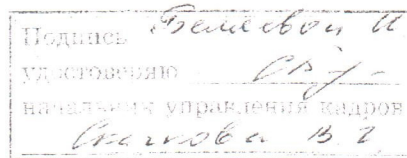 Подпись Беляевой И
удостоверяю
начальник управления кадров
В. Г